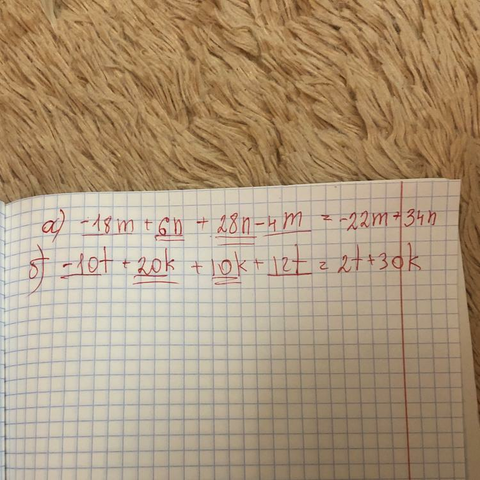 а) -18m + 6n + 28n - 4m = -22m + 34n
б) -10t + 20k + 10k + 12t = 2t + 30k